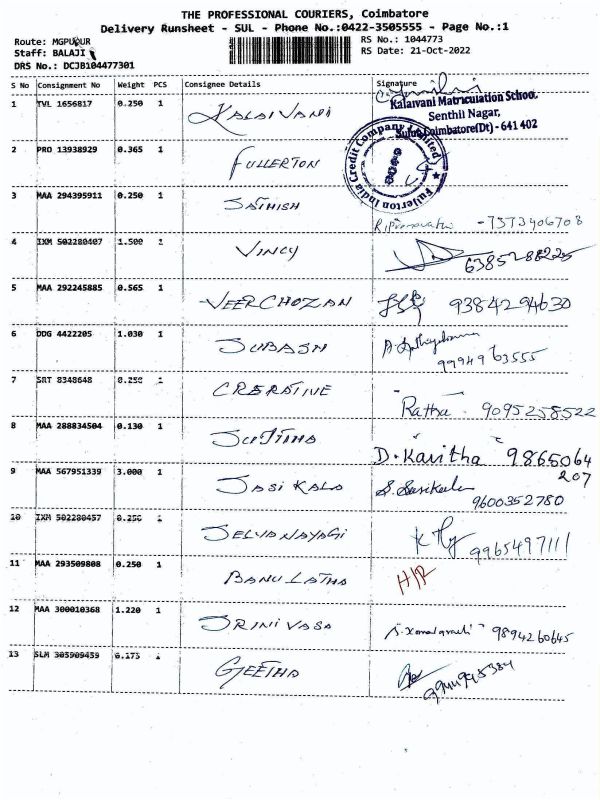 THE PROFESSIONAL COURIERS, Coimbatore
Delivery Runsheet - SUL - Phone No.:0422-3505555 - Page No.:1
Route: MGPUDUR
RS No.: 1044773
Staff: BALAJI
RS Date: 21-Oct-2022
DRS No.: DCJB104477301
S No Consignment No Weight PCS Consignee Details Signature
1 TVL 1656817 0.250 1 KALAIVANI
Kalaivani Matriculation School
Senthil Nagar,
Sulur, Coimbatore(Dt) - 641 402
2 PRO 13938929 0.365 1 FULLERTON
Fullerton India Credit Company Limited
3 MAA 294395911 0.250 1 SATHISH
7373406708
4 IXM 502280407 1.500 1 VINCY 6385288225
5 MAA 292245885 0.565 1 VEERCHOZAN 9384294630
6 DDG 4422205 1.030 1 SUBASH
9994963555
7 SRT 8348648 0.250 1 CRERATIVE
Ratha. 9095258522
8 MAA 288834504 0.130 1 SUJITHA
D. Kavitha 9865064
207
9 MAA 567951339 3.000 1 SASI KALA S. Sasikala
9600352780
10 IXM 502280457 0.250 1 SELVANAYAGI
9965497111
11 MAA 293509808 0.250 1 BANU LATHA H/R
12 MAA 300010368 1.220 1 SRINIVASA
9894260645
13 SLM 303909439 0.173 1 GEETHA